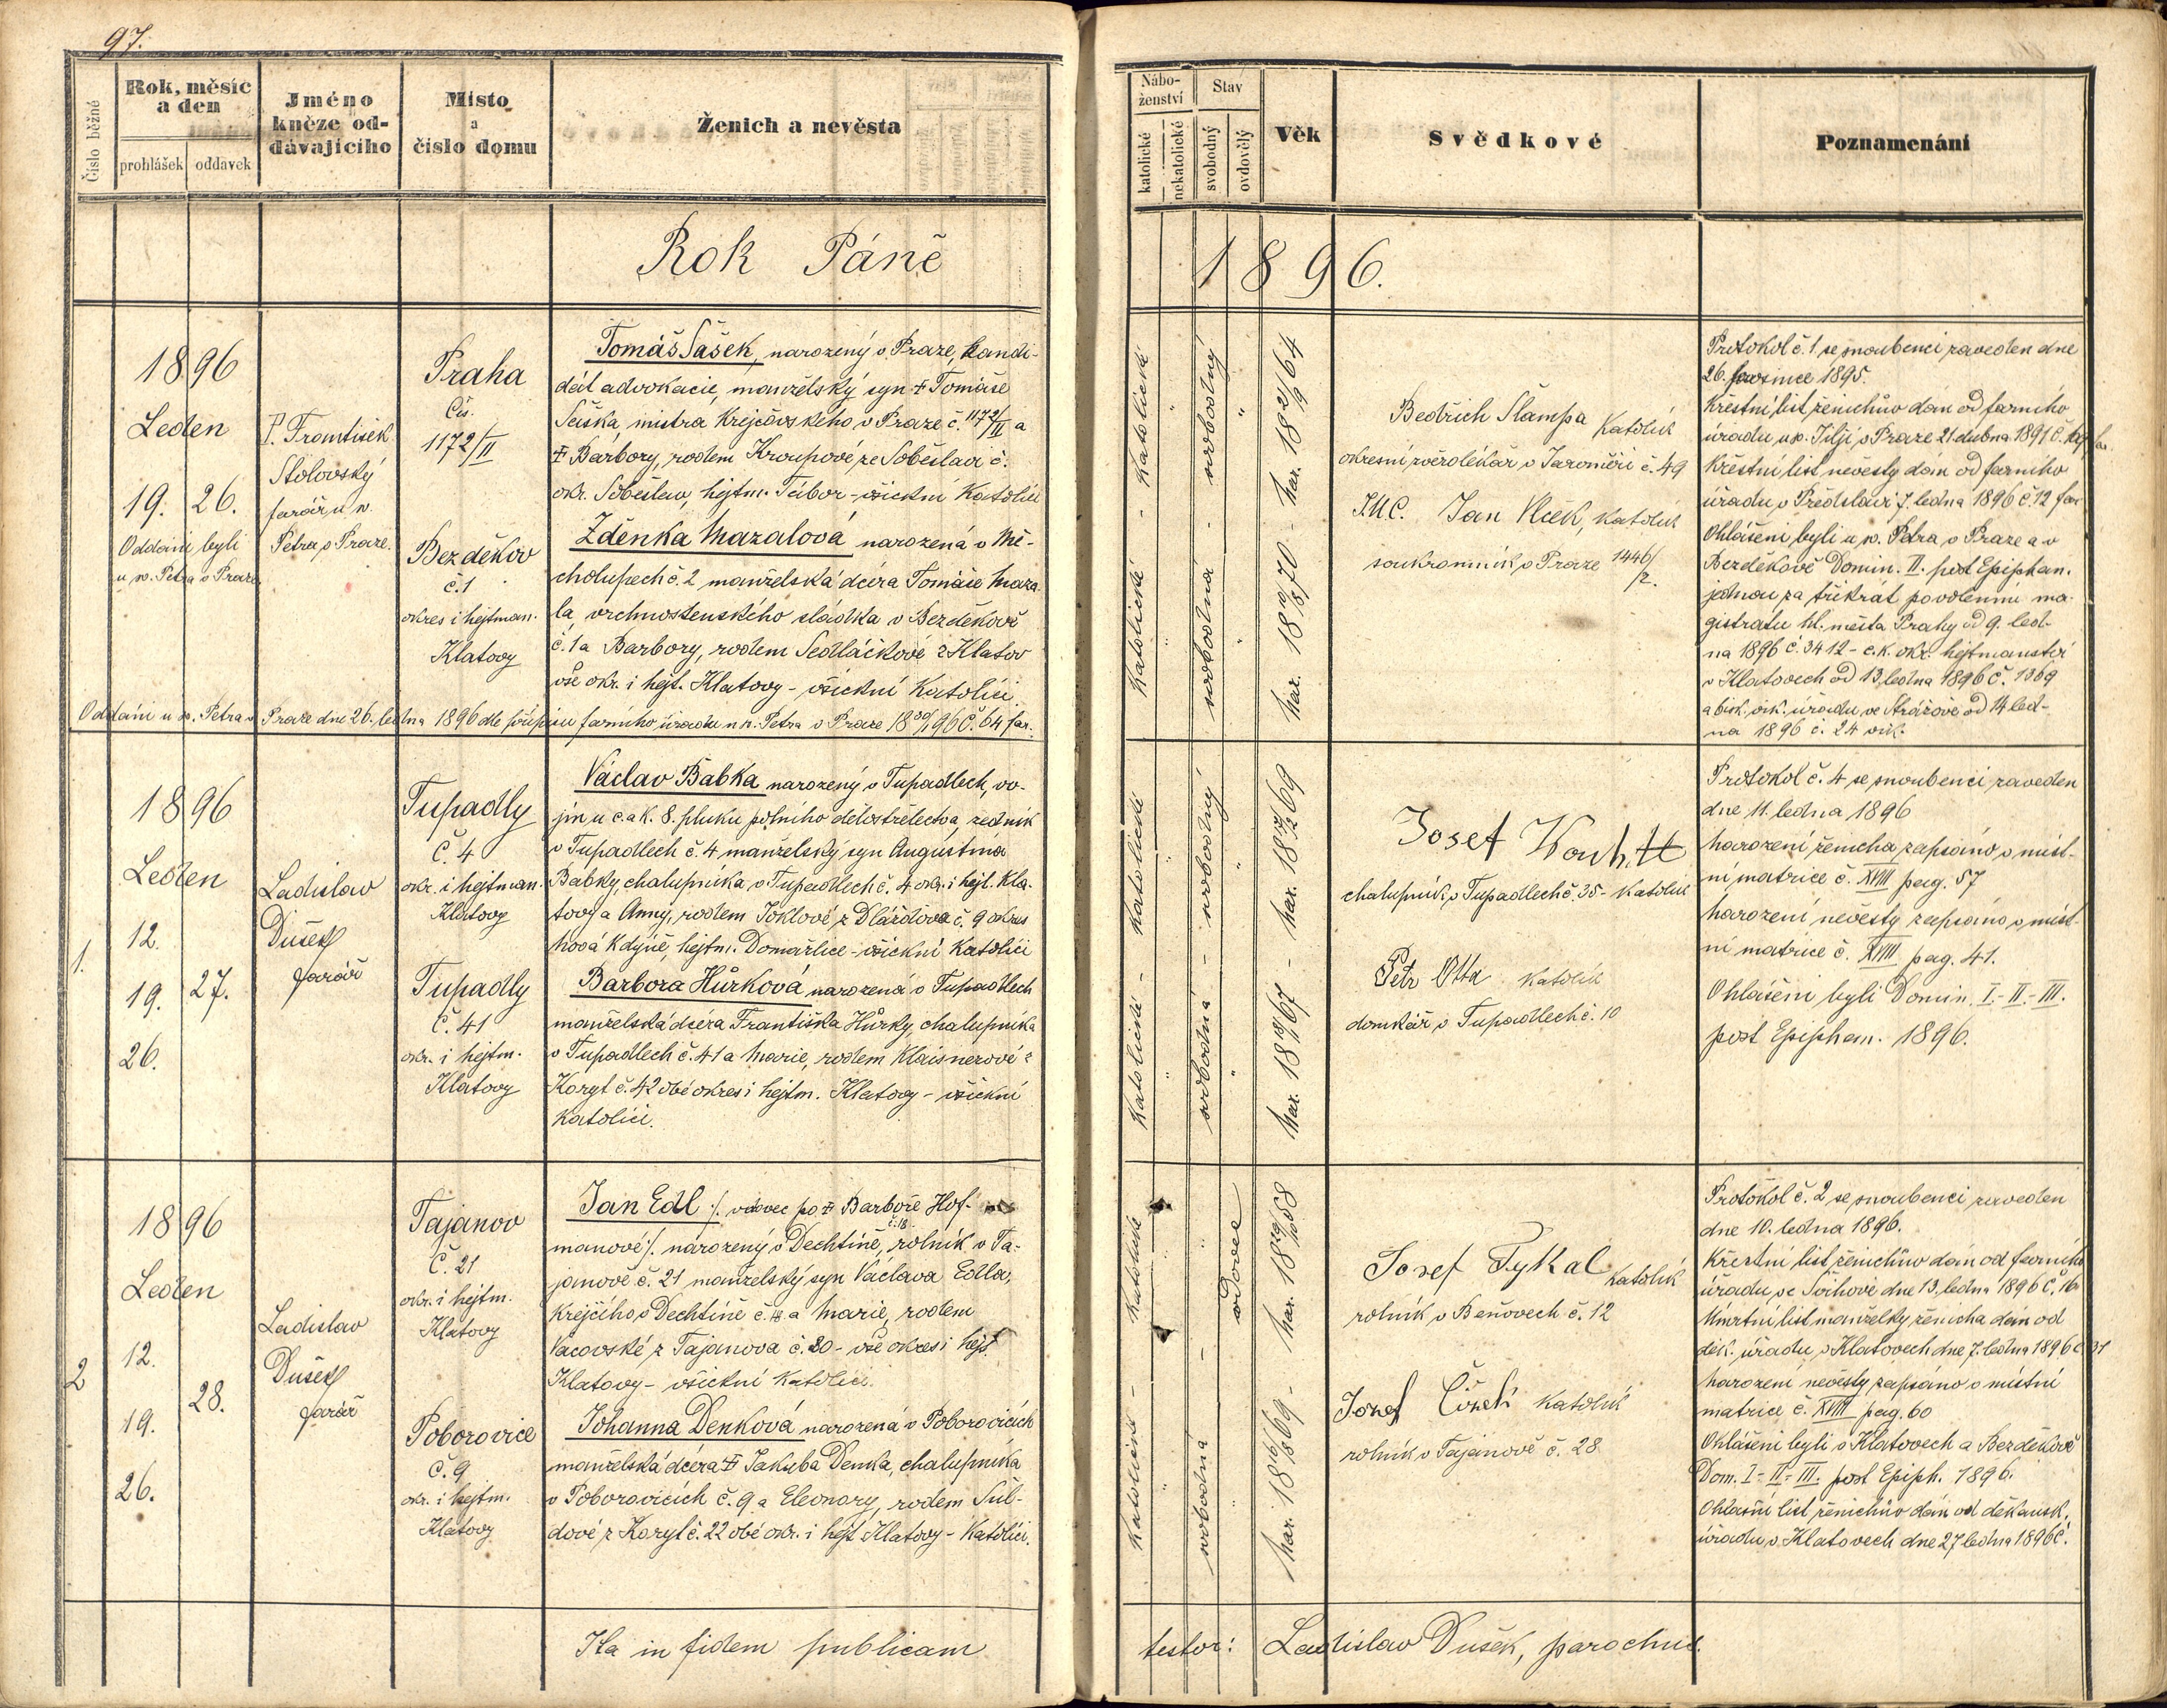 97.
Číslo běžné
Rok, měsíc
a den
prohlášek
oddavek
Jméno
kněze od-
dávajícího
Místo
a
číslo domu
Ženich a nevěsta
Nábo-
ženství
katolické
nekatolické
Stav
svobodný
ovdovělý
Věk
Svědkové
Poznamenání
Rok Páně
1896.
1896
Leden
19. 26.
Oddáni byli
u sv. Petra v Praze
P. František
Stolovský
farář u sv.
Petra v Praze.
Praha
Čís.
1172/II
Bezděkov
č. 1
okres i hejtman.
Klatovy
Tomáš Sašek, narozený v Praze, kandi-
dát advokacie, manželský syn † Tomáše
Saška, mistra krejčovského v Praze č. 1172/II a
† Barbory, rodem Kroupové ze Soběslavi č.
okr. Soběslav, hejtm. Tábor - všickni katolíci
Zděnka Mazalová narozená v Mě-
cholupech č. 2 manželská dcera Tomáše Maza-
la, vrchnostenského sládka v Bezděkově
č. 1 a Barbory, rodem Sedláčkové z Klatov
vše okr. i hejt. Klatovy - všickni katolíci.
Oddáni u sv. Petra v Praze dne 26. ledna 1896 dle přípisu farního úřadu u sv. Petra v Praze 18 30/1 96 č. 64 far.
katolické - katolické
svobodná - svobodný
nar. 18 10/8 70 - nar. 18 21/9 64
Bedřich Šlampa katolík
okresní zvěrolékař v Jaroměři č. 49
J.U.C. Jan Vlček, katolík
soukromník v Praze 1446/2.
Protokol č. 1 se snoubenci zaveden dne
26. prosince 1895.
Křestní list ženichův dán od farního
úřadu u sv. Jiljí v Praze 21 dubna 1891 č.
Křestní list nevěsty dán od farního
úřadu v Předslavi 7. ledna 1896 č. 12 far
Ohlášeni byli u sv. Petra v Praze a v
Bezděkově Domin. II. post Epiphan.
jednou za třikrát povolením ma-
gistratu hl. města Prahy od 9. led-
na 1896 č. 3412 - c. k. okr. hejtmanství
v Klatovech od 13. ledna 1896 č. 1369
a bisk. vik. úřadu ve Strážově od 14 led-
na 1896 č. 24 vik.
1.
1896
Leden
12.
19. 27.
26.
Ladislav
Dušek
farář
Tupadly
Č. 4
okr. i hejtman.
Klatovy
Tupadly
Č. 41
okr. i hejtm.
Klatovy
Václav Babka narozený v Tupadlech, vo-
jín u c. a k. 8. pluku polního dělostřelectva, zedník
v Tupadlech č. 4 manželský syn Augustina
Babky, chalupníka v Tupadlech č. 4 okr. i hejt. Kla-
tovy a Anny, rodem Joklové z Dlážďova č. 9 okres
Nová Kdyně, hejtm. Domažlice - všickni katolíci
Barbora Hůrková narozená v Tupadlech
manželská dcera Františka Hůrky, chalupníka
v Tupadlech č. 41 a Marie, rodem Klaisnerové z
Koryt č. 42 obé okres i hejtm. Klatovy - všickni
katolíci.
katolické - katolické
svobodná - svobodný
Josef
chalupník v Tupadlech č. 35 - katolík
Petr Otta katolík
domkář v Tupadlech č. 10
Protokol č. 4 se snoubenci zaveden
dne 11. ledna 1896
Narození ženicha zapsáno v míst-
ní matrice č. XVIII pag. 57
Narození nevěsty zapsáno v míst-
ní matrice č. XVIII pag. 41.
Ohlášeni byli Domin. I.- II.- III.
post Epiphan. 1896.
2
1896
Leden
12.
19. 28.
26.
Ladislav
Dušek
farář
Tajanov
Č. 21
okr. i hejtm.
Klatovy
Poborovice
Č. 9
okr. i hejtm.
Klatovy
Jan Edl /. vdovec po † Barboře Hof-
manové ./. narozený v Dechtíně č. 18, rolník v Ta-
janově č. 21 manželský syn Václava Edla,
krejčího v Dechtíně č. 18 a Marie, rodem
Vacovské z Tajanova č. 20 - vše okres i hejt.
Klatovy - všickni katolíci.
Johanna Denková narozená v Poborovicích
manželská dcera † Jakuba Denka, chalupníka
v Poborovicích č. 9 a Eleonory, rodem Šul-
dové z Koryt č. 22 obé okr. i hejt Klatovy - katolíci.
katolické - katolické
svobodná - vdovec
Josef Tykal katolík
rolník v Beňovech č. 12
Josef katolík
rolník v Tajanově č. 28
Protokol č. 2 se snoubenci zaveden
dne 10. ledna 1896.
Křestní list ženichův dán od farního
úřadu ve Švihově dne 13. ledna 1896 č. 16
Úmrtní list manželky ženicha dán od
děk. úřadu v Klatovech dne 7. ledna 1896 č. 31
Narození nevěsty zapsáno v místní
matrice č. XVIII pag. 60
Ohlášeni byli v Klatovech a Bezděkově
Dom. I - II - III. post Epiph. 1896.
Ohlašní list ženichův dán od děkansk.
úřadu v Klatovech dne 27 ledna 1896 č.
Ita in fidem publicam
testor: Ladislav Dušek, parochus.